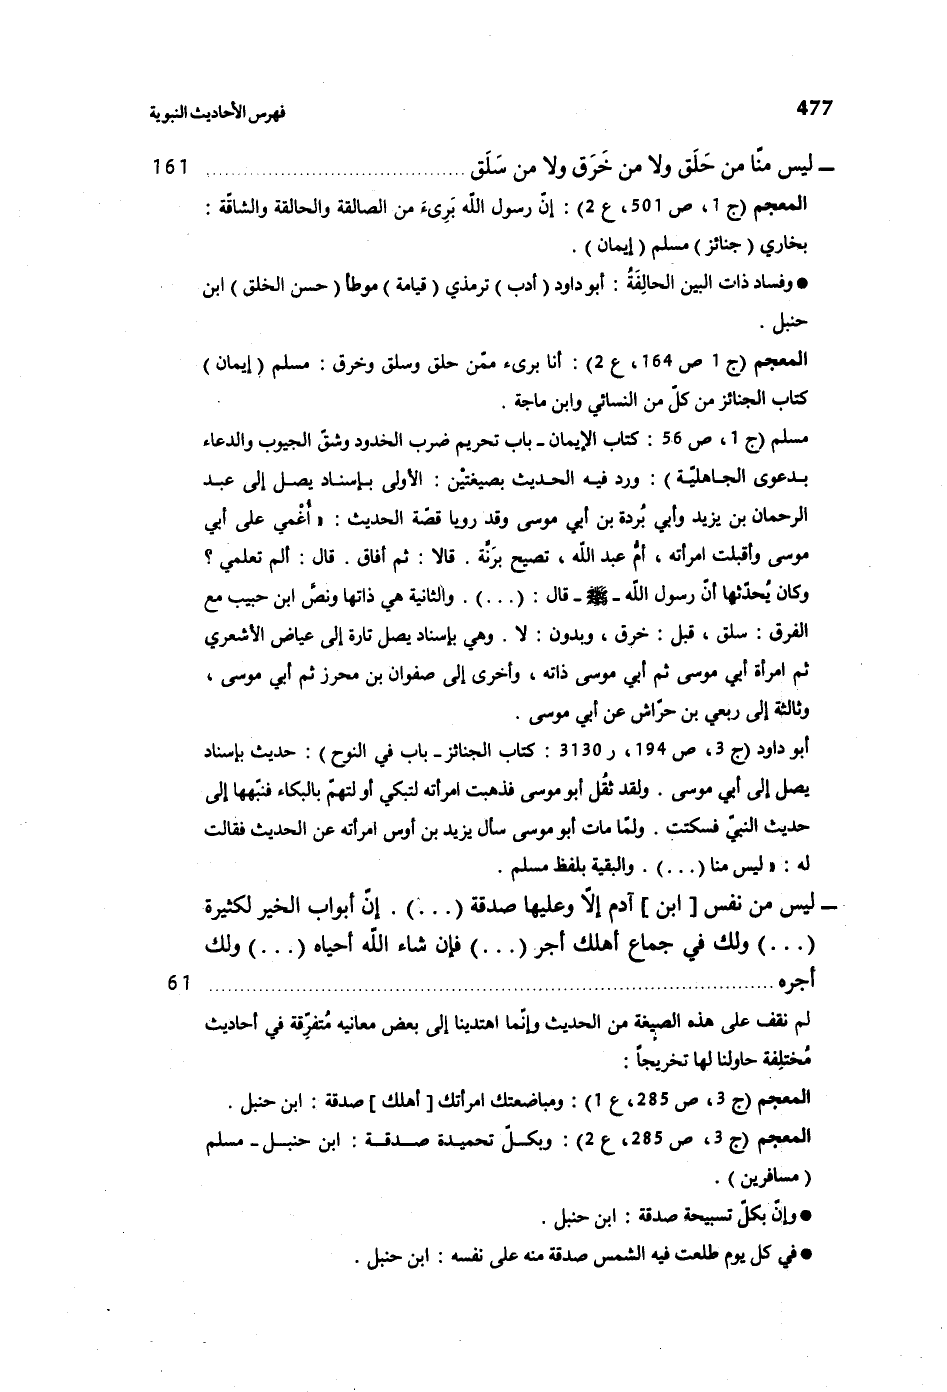 477
فهرس الأحاديث النبوية
ـ ليس منّا من حَلَق ولا من خَرَق ولا من سَلَق ........................................ 161
المعجم (ج 1، ص 501، ع 2) : إنّ رسول اللّه بَرِىءَ من الصالقة والحالقة والشاقّة :
بخاري ( جنائز ) مسلم ( إيمان ) .
● وفساد ذات البين الحالِقَةُ : أبو داود ( أدب ) ترمذي ( قيامة ) موطأ ( حسن الخلق ) ابن
حنبل .
المعجم (ج 1 ص 164، ع 2) : أنا برىء ممّن حلق وسلق وخرق : مسلم ( إيمان )
كتاب الجنائز من كلّ من النسائي وابن ماجة .
مسلم (ج 1، ص 56 : كتاب الإيمان ـ باب تحريم ضرب الخدود وشقّ الجيوب والدعاء
بدعوى الجاهليّة ) : ورد فيه الحديث بصيغتيْن : الأولى بإسناد يصل إلى عبد
الرحمان بن يزيد وأبي بُردة بن أبي موسى وقد رويا قصّة الحديث : « أُغْمي على أبي
موسى وأقبلت امرأته ، أمُّ عبد اللّه ، تصيح برَنَّة . قالا : ثم أفاق . قال : ألم تعلمي ؟
وكان يُحدّثها أنّ رسول اللّه ـ ﷺ ـ قال : (...) . والثانية هي ذاتها ونصَّ ابن حبيب مع
الفرق : سلق ، قبل : خرق ، وبدون : لا . وهي بإسناد يصل تارة إلى عياض الأشعري
ثم امرأة أبي موسى ثم أبي موسى ذاته ، وأخرى إلى صفوان بن محرز ثم أبي موسى ،
وثالثة إلى ربعي بن حرّاش عن أبي موسى .
أبو داود (ج 3، ص 194، ر 3130 : كتاب الجنائز ـ باب في النوح ) : حديث بإسناد
يصل إلى أبي موسى . ولقد ثقُل أبو موسى فذهبت امرأته لتبكي أو لتهمّ بالبكاء فنبّهها إلى
حديث النبيّ فسكتت . ولمّا مات أبو موسى سأل يزيد بن أوس امرأته عن الحديث فقالت
له : « ليس منا (...) . والبقية بلفظ مسلم .
ـ ليس من نفس [ ابن ] آدم إلّا وعليها صدقة (...) . إنّ أبواب الخير لكثيرة
(...) ولك في جماع أهلك أجر (...) فإن شاء اللّه أحياه (...) ولك
أجره ........................................ 61
لم نقف على هذه الصيغة من الحديث وإنّما اهتدينا إلى بعض معانيه مُتفرِّقة في أحاديث
مُختلِفة حاولنا لها تخريجاً :
المعجم (ج 3، ص 285، ع 1) : ومباضعتك امرأتك [ أهلك ] صدقة : ابن حنبل .
المعجم (ج 3، ص 285، ع 2) : وبكلّ تحميدة صدقة : ابن حنبل ـ مسلم
( مسافرين ) .
● وإنّ بكلّ تسبيحة صدقة : ابن حنبل .
● في كل يوم طلعت فيه الشمس صدقة منه على نفسه : ابن حنبل .